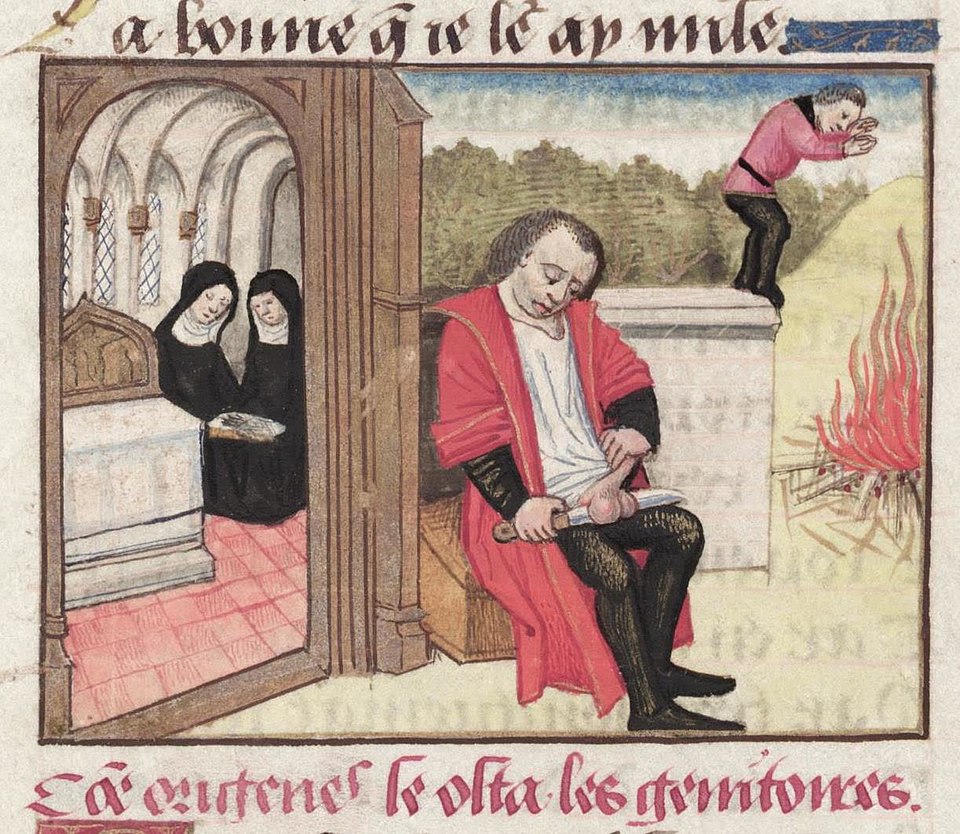 a. bonne q̃ ie lẽ ay mise.
Cõe origenes se osta les genitoires.